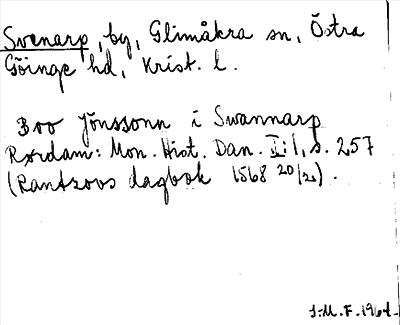 Svenarp, by, Glimåkra sn, Östra
Göinge hd, Krist. l.
Boo Jönssonn i Swannarp
Rørdam: Mon. Hist. Dan. II:1, s. 257
(Rantzovs dagbok 1568 20/2).
J.M.F. 1964